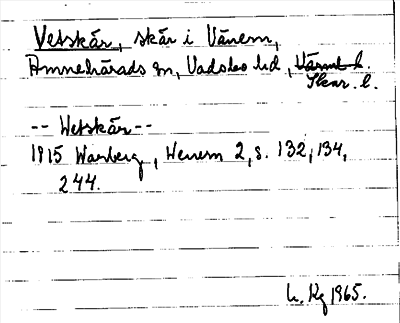 Vetskär, skär i Vänern,
Amnehärads sn, Vadsbo hd, Värml. l.
Skar. l.
-- Wetskär --
1915 Warberg, Henrern 2, s. 132, 134,
244.
L. Rg 1965.